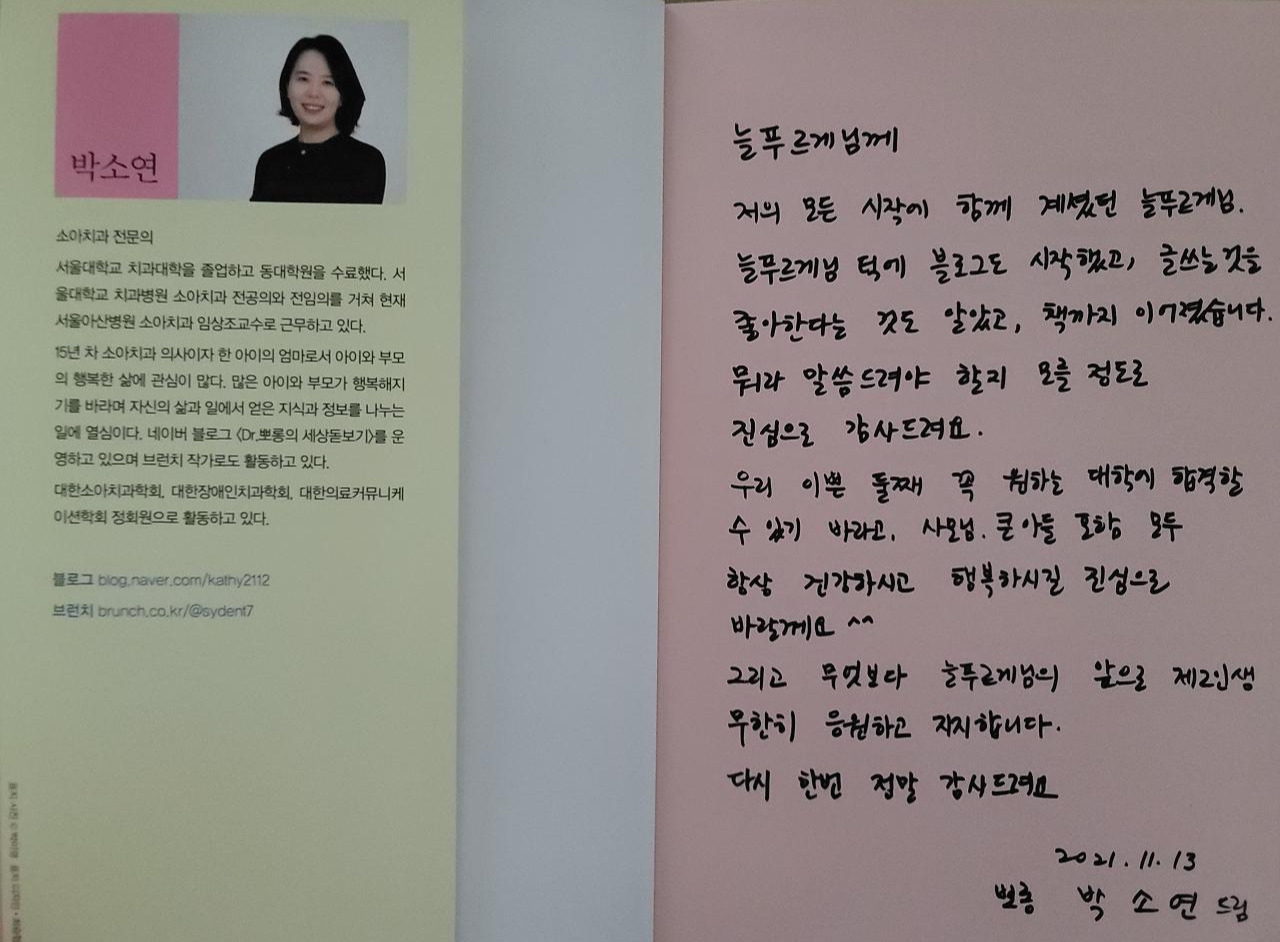 박소연
소아치과 전문의
서울대학교 치과대학을 졸업하고 동대학원을 수료했다. 서
울대학교 치과병원 소아치과 전공의와 전임의를 거쳐 현재
서울아산병원 소아치과 임상조교수로 근무하고 있다.
15년 차 소아치과 의사이자 한 아이의 엄마로서 아이와 부모
의 행복한 삶에 관심이 많다. 많은 아이와 부모가 행복해지
기를 바라며 자신의 삶과 일에서 얻은 지식과 정보를 나누는
일에 열심이다. 네이버 블로그 〈Dr.뽀롱의 세상돋보기〉를 운
영하고 있으며 브런치 작가로도 활동하고 있다.
대한소아치과학회, 대한장애인치과학회, 대한의료커뮤니케
이션학회 정회원으로 활동하고 있다.
블로그 blog.naver.com/kathy2112
브런치 brunch.co.kr/@sydent7
늘푸르게님께
저의 모든 시작에 함께 계셨던 늘푸르게님.
늘푸르게님 덕에 블로그도 시작했고, 글쓰는것을
좋아한다는 것도 알았고, 책까지 이어졌습니다.
뭐라 말씀드려야 할지 모를 정도로
진심으로 감사드려요.
우리 이쁜 둘째 꼭 원하는 대학에 합격할
수 있기 바라고, 사모님, 큰아들 포함 모두
항상 건강하시고 행복하시길 진심으로
바랄께요 ^^
그리고 무엇보다 늘푸르게님의 앞으로 제2인생
무한히 응원하고 지지합니다.
다시 한번 정말 감사드려요
2021.11.13
박소연 드림